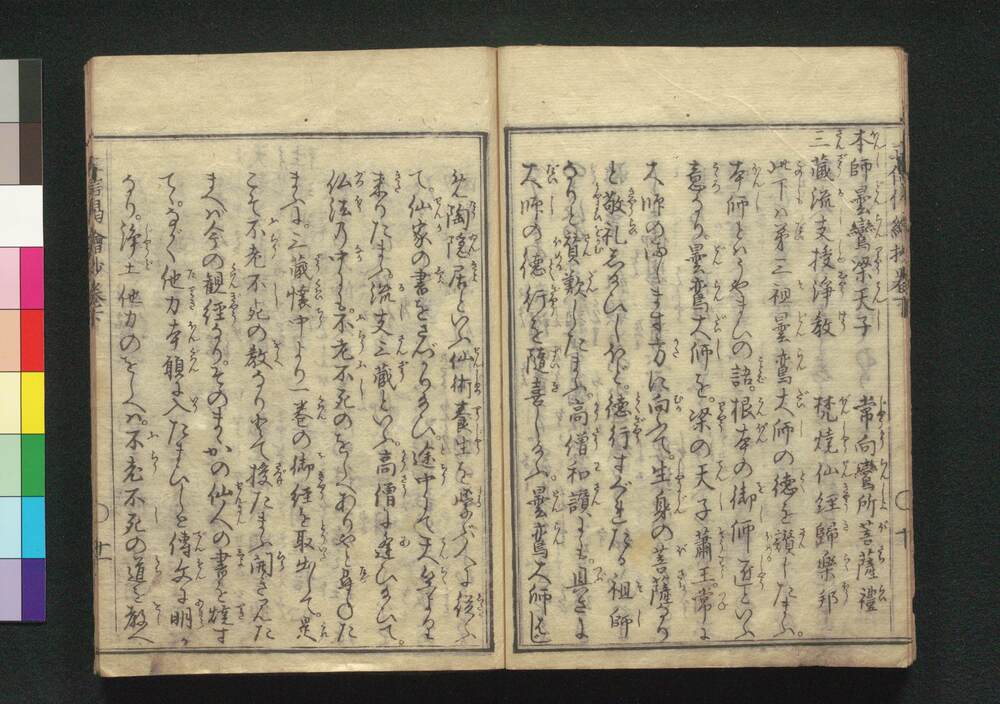 本師曇鸞梁天子　常向鸞所菩薩禮
三藏流支授淨教　梵燒仙経歸樂邦
此下ハ第三祖曇鸞大師の徳を讃したまふ。
本師といふハうやまひの語。根本の御師匠といふ
意なり。曇鸞大師を。梁の天子蕭王。常に
大師のまします方に向ふて生身の菩薩なり
と敬礼し給ひしほど。徳行すぐれたる祖師
なりと讃歎したまふ。高僧和讃にも。具さに
大師の徳行を隨喜し給ふ。曇鸞大師はじ
め陶隠居といふ仙術養生を学ぶ人に從ふ
て。仙家の書をさづかりたまひ途中にて天竺より
来りたまふ流支三藏といふ高僧に逢ひたまひて。
仏法の中にも不老不死のをしへありやと尋た
まふ。三藏懐中より一巻の御経を取出して。是
こそ不老不死の教なりとて授たまふ開きみた
まへバ今の観経なり。そのまゝかの仙人の書を焼す
て。ながく他力本願に入たまひしと傳文に明か
なり。浄土他力のをしへハ。不老不死の道を教へ